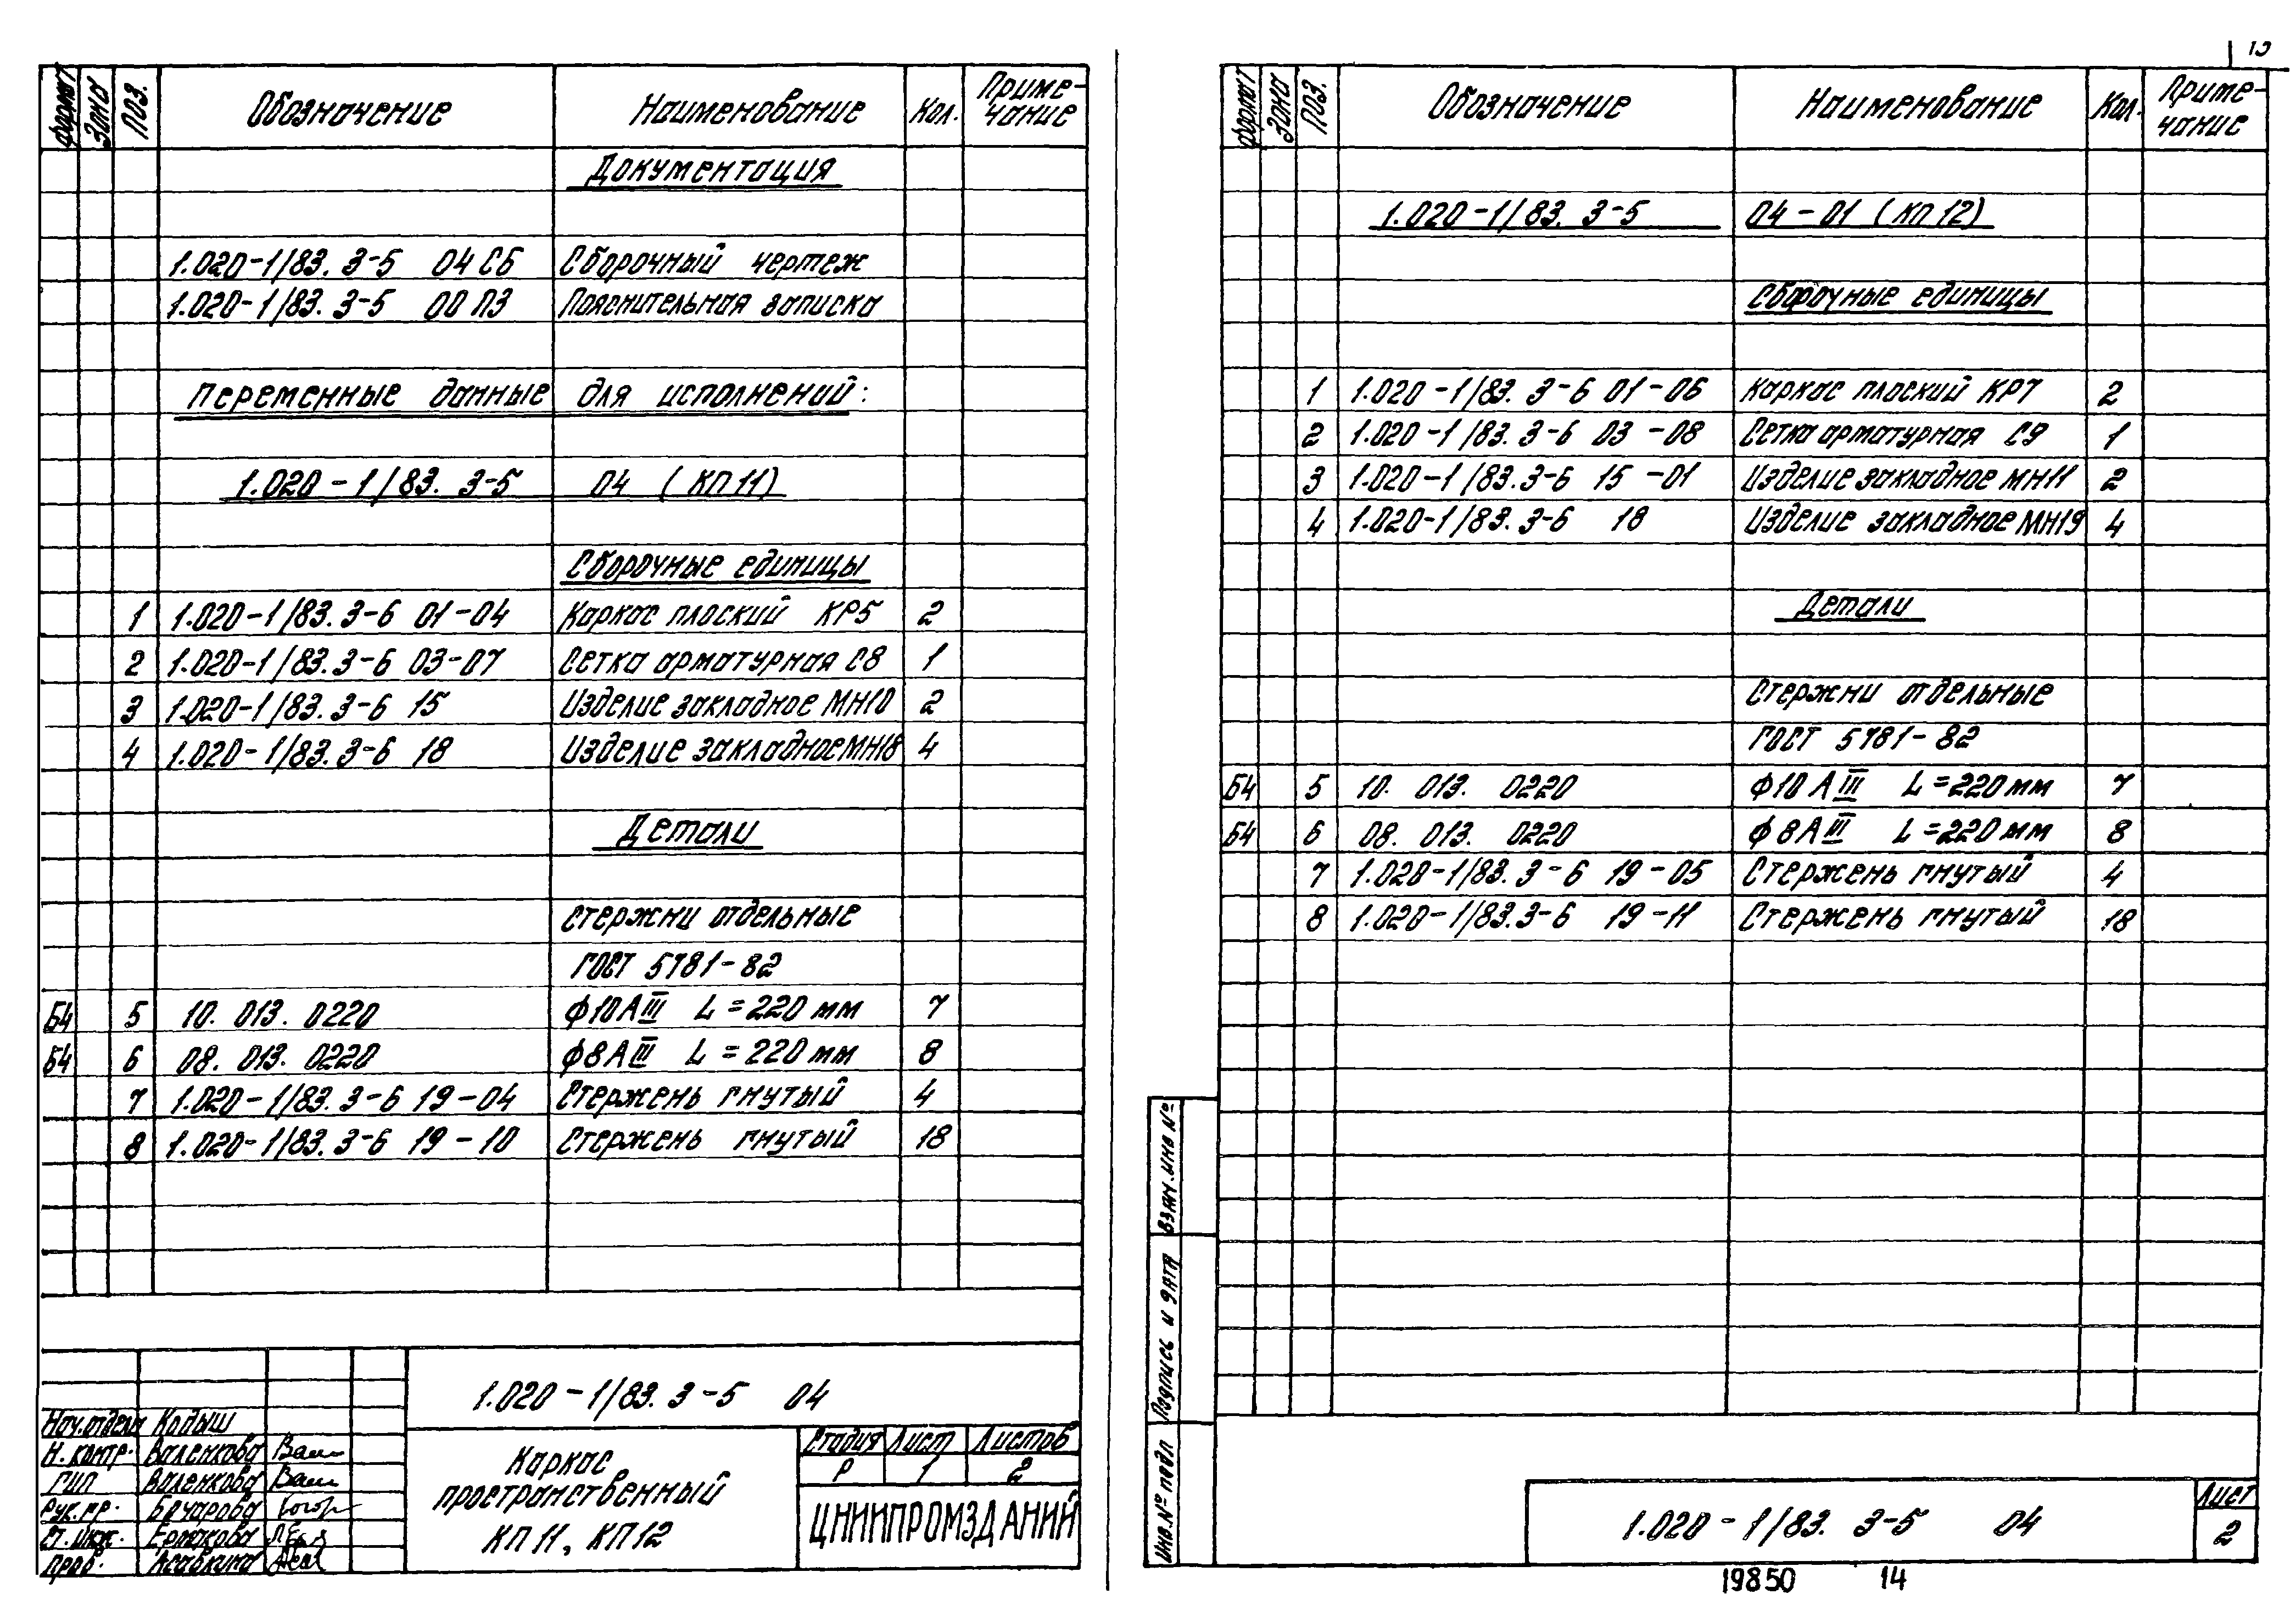 Формат Зона Поз. Обозначение Наименование Кол. Приме-
чание
Документация
1.020-1/83. 3-5 04 СБ Сборочный чертеж
1.020-1/83. 3-5 00 ПЗ Пояснительная записка
Переменные данные для исполнений:
1.020-1/83. 3-5 04 (КП11)
Сборочные единицы
1 1.020-1/83. 3-6 01-04 Каркас плоский КР5 2
2 1.020-1/83. 3-6 03-07 Сетка арматурная С8 1
3 1.020-1/83. 3-6 15 Изделие закладное МН10 2
4 1.020-1/83. 3-6 18 Изделие закладное МН18 4
Детали
Стержни отдельные
ГОСТ 5781-82
Б4 5 10. 013. 0220 ф10АIII L = 220 мм 7
Б4 6 08. 013. 0220 ф8АIII L = 220 мм 8
7 1.020-1/83. 3-6 19-04 Стержень гнутый 4
8 1.020-1/83. 3-6 19-10 Стержень гнутый 18
1.020-1/83. 3-5 04
Нач.отдела Кодыш
Н.контр. Валенкова
ГИП Валенкова
Рук.гр. Бочарова
Ст.инж. Ермакова
Пров.
Каркас
пространственный
КП11, КП12
Стадия Лист Листов
Р 1 2
ЦНИИПРОМЗДАНИЙ
Формат Зона Поз. Обозначение Наименование Кол. Приме-
чание
1.020-1/83. 3-5 04-01 (КП12)
Сборочные единицы
1 1.020-1/83. 3-6 01-06 Каркас плоский КР7 2
2 1.020-1/83. 3-6 03-08 Сетка арматурная С9 1
3 1.020-1/83. 3-6 15-01 Изделие закладное МН11 2
4 1.020-1/83. 3-6 18 Изделие закладное МН19 4
Детали
Стержни отдельные
ГОСТ 5781-82
Б4 5 10. 013. 0220 ф10АIII L = 220 мм 7
Б4 6 08. 013. 0220 ф8АIII L = 220 мм 8
7 1.020-1/83. 3-6 19-05 Стержень гнутый 4
8 1.020-1/83. 3-6 19-11 Стержень гнутый 18
Взам.инв №
Подпись и дата
Инв.№ подл
1.020-1/83. 3-5 04
Лист
2
19850 14